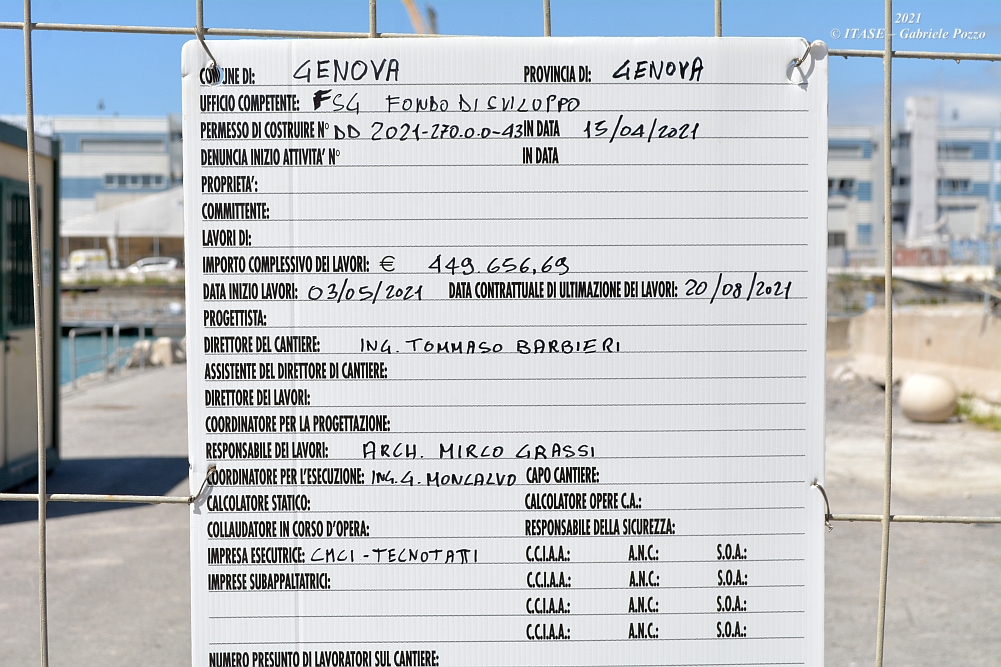 2021
© ITASE – Gabriele Pozzo
COMUNE DI: GENOVA PROVINCIA DI: GENOVA
UFFICIO COMPETENTE: FSG FONDO DI SVILUPPO
PERMESSO DI COSTRUIRE N° DD 2021-270.0.0-43 IN DATA 15/04/2021
DENUNCIA INIZIO ATTIVITA' N° IN DATA
PROPRIETA':
COMMITTENTE:
LAVORI DI:
IMPORTO COMPLESSIVO DEI LAVORI: € 449.656,69
DATA INIZIO LAVORI: 03/05/2021 DATA CONTRATTUALE DI ULTIMAZIONE DEI LAVORI: 20/08/2021
PROGETTISTA:
DIRETTORE DEL CANTIERE: ING. TOMMASO BARBIERI
ASSISTENTE DEL DIRETTORE DI CANTIERE:
DIRETTORE DEI LAVORI:
COORDINATORE PER LA PROGETTAZIONE:
RESPONSABILE DEI LAVORI: ARCH. MIRCO GRASSI
COORDINATORE PER L'ESECUZIONE: ING. G. MONCALVO CAPO CANTIERE:
CALCOLATORE STATICO: CALCOLATORE OPERE C.A.:
COLLAUDATORE IN CORSO D'OPERA: RESPONSABILE DELLA SICUREZZA:
IMPRESA ESECUTRICE: CMCI - TECNOTATTI C.C.I.A.A.: A.N.C.: S.O.A.:
IMPRESE SUBAPPALTATRICI: C.C.I.A.A.: A.N.C.: S.O.A.:
C.C.I.A.A.: A.N.C.: S.O.A.:
C.C.I.A.A.: A.N.C.: S.O.A.:
NUMERO PRESUNTO DI LAVORATORI SUL CANTIERE: